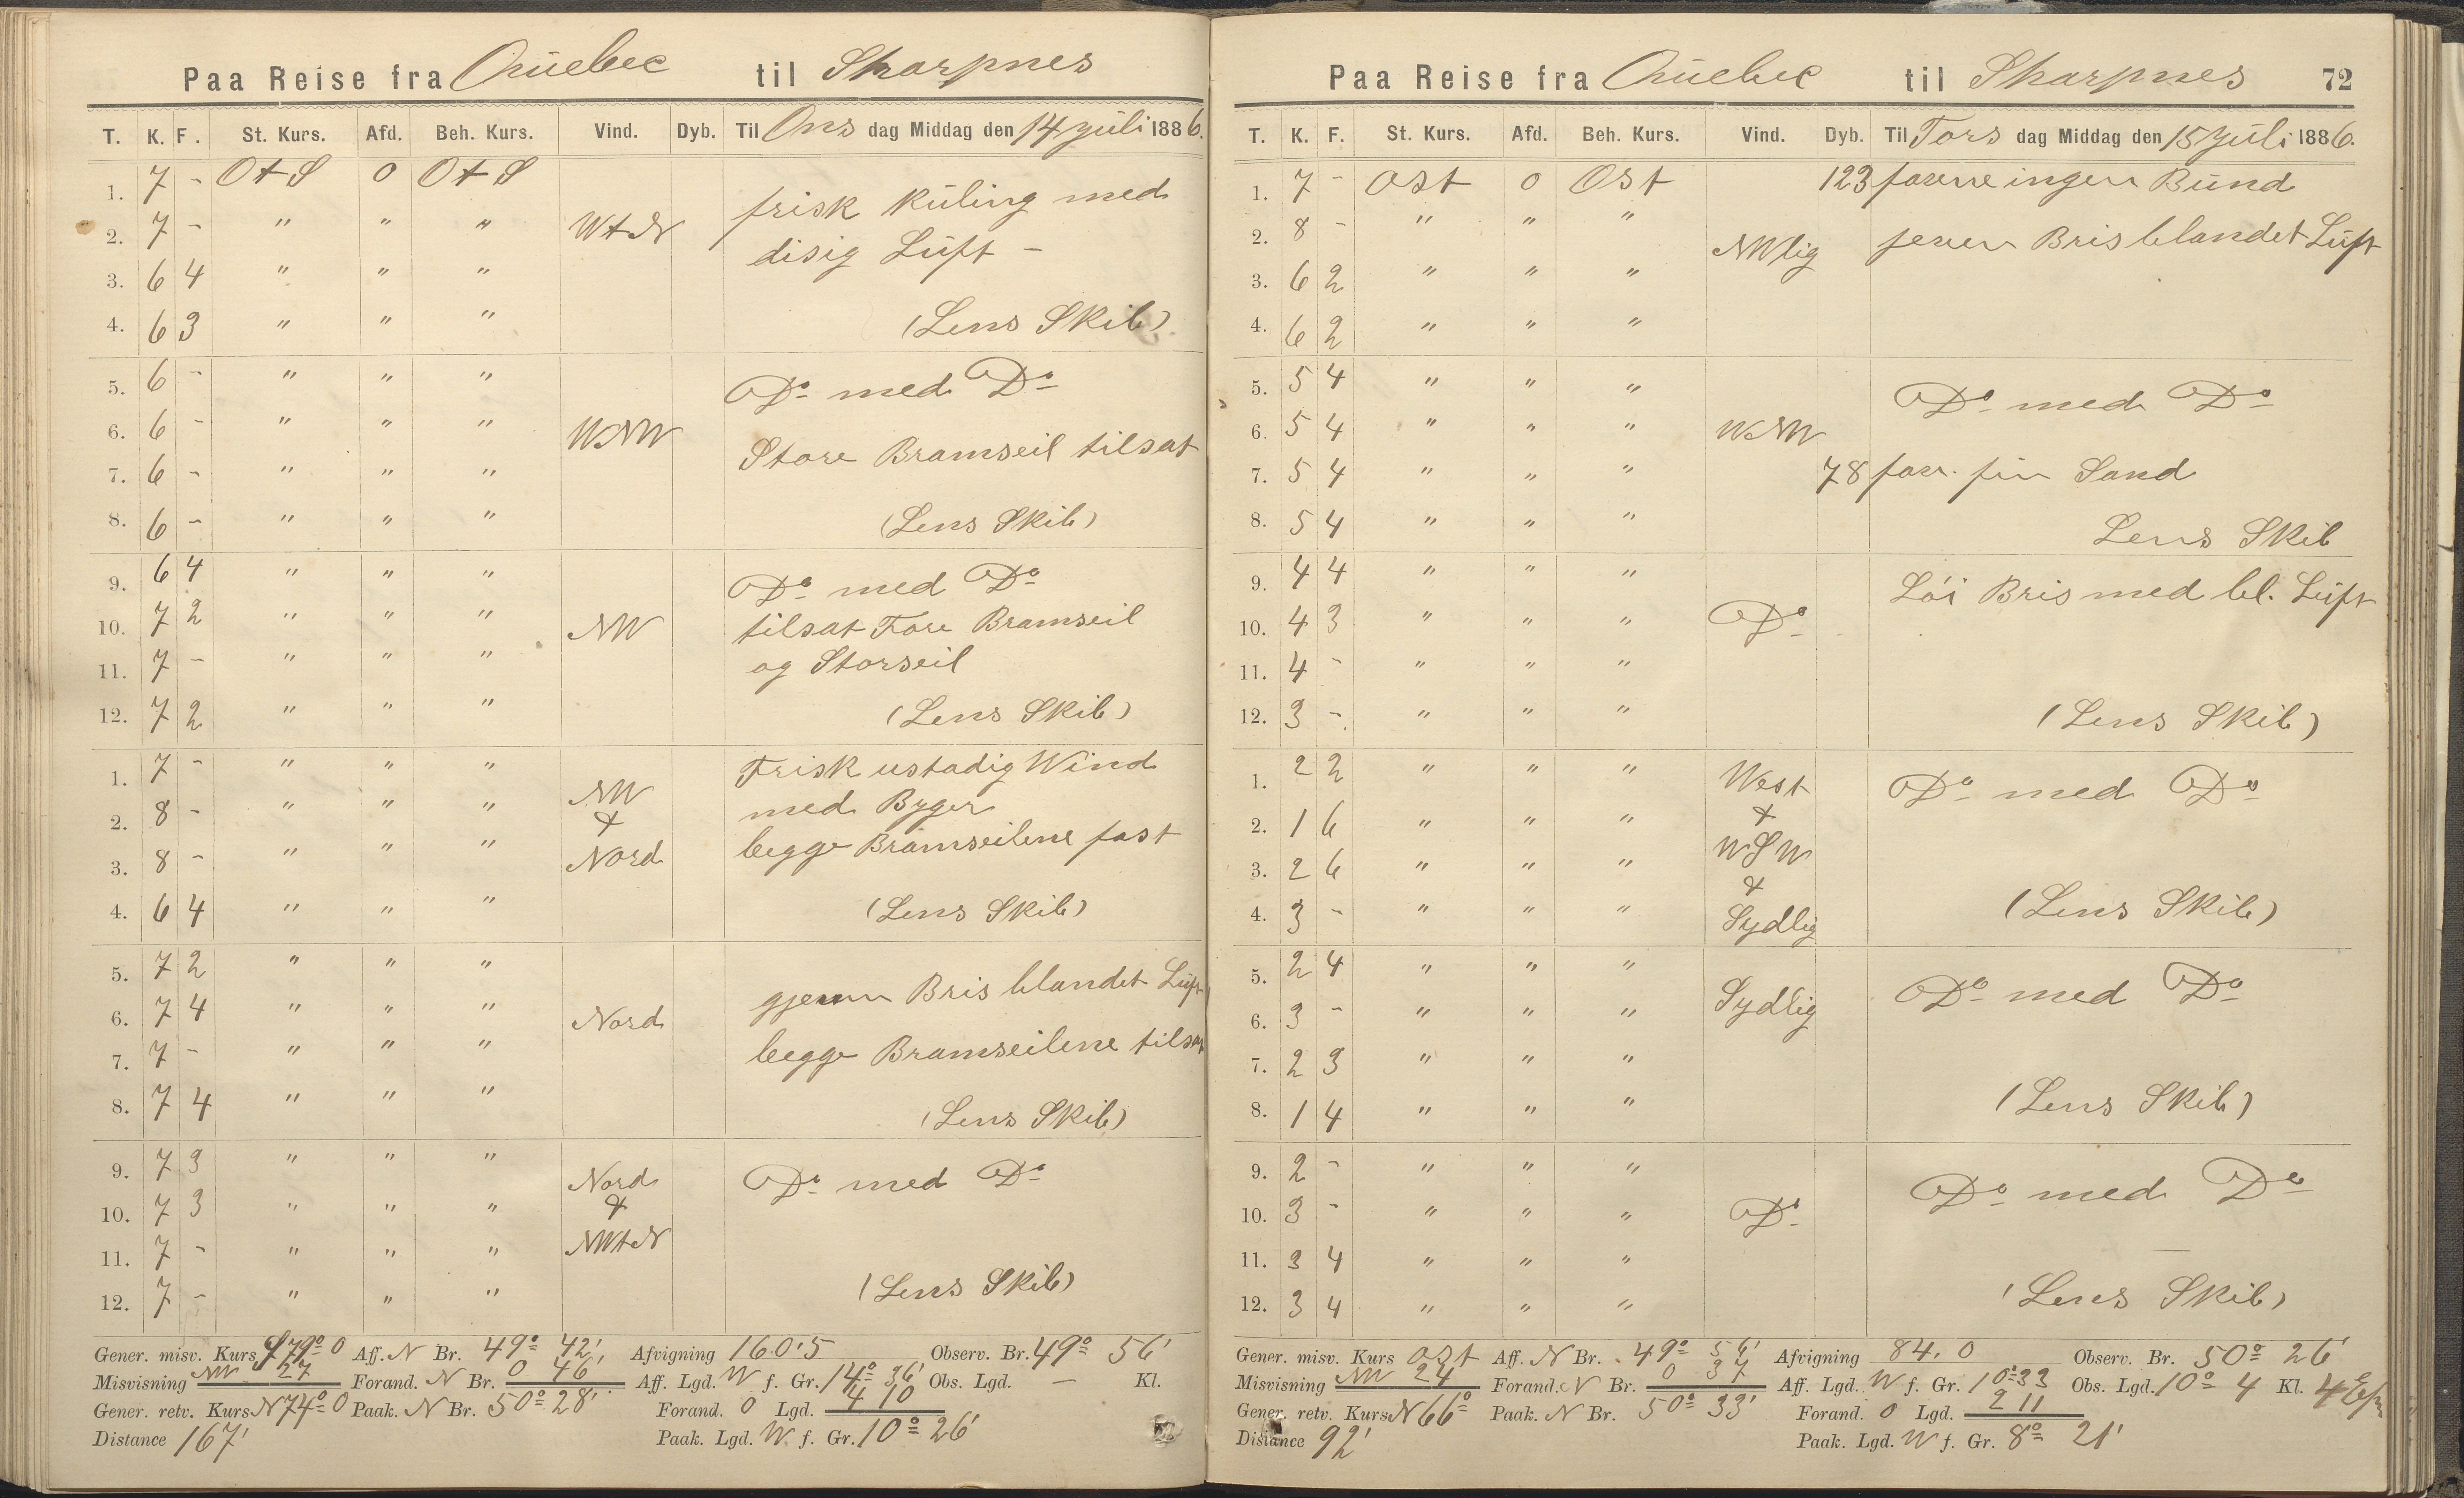 Paa Reise fra Quebec til Sharpnes
T. K. F. St. Kurs. Afd. Beh. Kurs. Vind. Dyb. Til Ons dag Middag den 14 Juli 1886.
1. 7 - OtS 0 OtS
frisk Kuling med
2. 7 - " " " WtN
disig Luft -
3. 6 4 " " "
4. 6 3 " " " (Lens Skib)
5. 6 - " " " Do med Do
6. 6 - " " " WNW
Store Bramseil tilsat
7. 6 - " " "
8. 6 - " " " (Lens Skib)
9. 6 4 " " " Do med Do
10. 7 2 " " " NW tilsat Fore Bramseil
11. 7 - " " " og Storseil
12. 7 2 " " " (Lens Skib)
1. 7 - " " " Frisk ustadig Wind
2. 8 - " " " NW & med Byger
3. 8 - " " " Nord begge Bramseilene fast
4. 6 4 " " " (Lens Skib)
5. 7 2 " " " gjenn Bris blandet Luft
6. 7 4 " " " Nord
7. 7 - " " " begge Bramseilene tilsat
8. 7 4 " " " (Lens Skib)
9. 7 3 " " " Nord Do med Do
10. 7 3 " " " &
11. 7 - " " " NWtN
12. 7 - " " " (Lens Skib)
Gener. misv. Kurs S79° O Aff. N Br. 49° 42' Afvigning 160'5 Observ. Br. 49° 56'
Misvisning NW 27 Forand. N Br. 0 46' Aff. Lgd. W f. Gr. 14° 36' Obs. Lgd. — Kl.
Gener. retv. Kurs N74° O Paak. N Br. 50° 28' Forand. O Lgd. 4 10
Distance 167' Paak. Lgd. W. f. Gr. 10° 26'
Paa Reise fra Quebec til Sharpnes 72
T. K. F. St. Kurs. Afd. Beh. Kurs. Vind. Dyb. Til Tors dag Middag den 15 Juli 1886.
1. 7 - Ost 0 Ost 123 favne ingen Bund
2. 8 - " " " NWlig jevn Bris blandet Luft
3. 6 2 " " "
4. 6 2 " " "
5. 5 4 " " " Do med Do
6. 5 4 " " " WNW
7. 5 4 " " " 78 favn. fin Sand
8. 5 4 " " " Lens Skib
9. 4 4 " " " Löi Bris med bl. Luft
10. 4 3 " " " Do
11. 4 - " " "
12. 3 - " " " (Lens Skib)
1. 2 2 " " " West Do med Do
2. 1 6 " " " &
3. 2 6 " " " WSW
&
4. 3 - " " " Sydlig (Lens Skib)
5. 2 4 " " " Do med Do
6. 3 - " " " Sydlig
7. 2 3 " " "
8. 1 4 " " " (Lens Skib)
9. 2 - " " " Do med Do
10. 3 - " " " Do
11. 3 4 " " " —
12. 3 4 " " " (Lens Skib)
Gener. misv. Kurs Ost Aff. N Br. 49° 56' Afvigning 84.0 Observ. Br. 50° 26'
Misvisning NW 24 Forand. N Br. 0 37 Aff. Lgd. W f. Gr. 10° 33 Obs. Lgd. 10° 4 Kl. 4
Gener. retv. Kurs N66° Paak. N Br. 50° 33' Forand. O Lgd. 2 11
Distance 92' Paak. Lgd. W f. Gr. 8° 21'